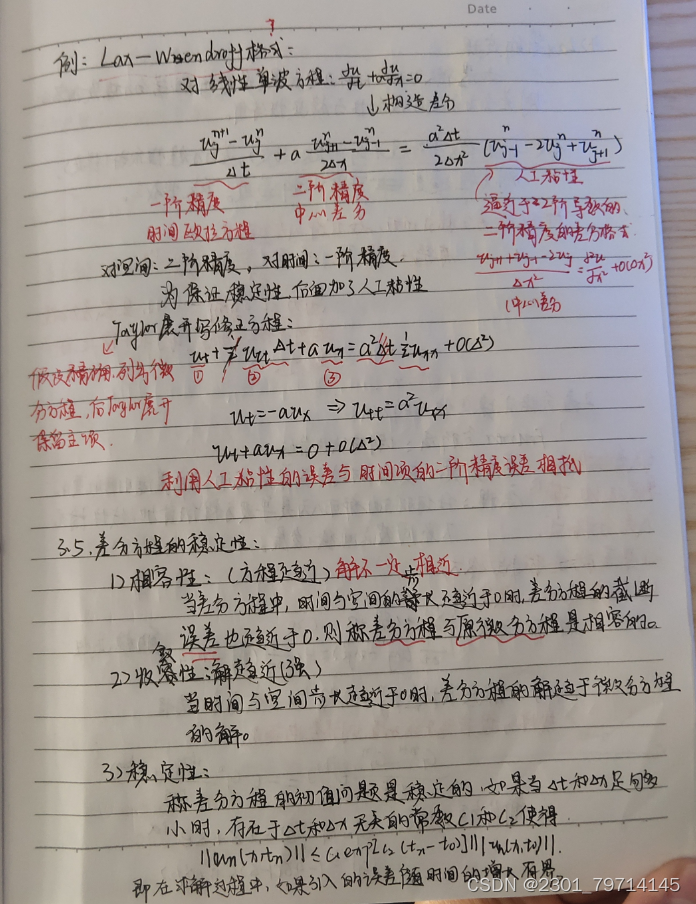 Date
例：Lax-Wendroff格式：
对线性单波方程：∂u/∂t + a∂u/∂x = 0
↓构造差分
(u_j^{n+1} - u_j^n)/Δt + a (u_{j+1}^n - u_{j-1}^n)/2Δx = a²Δt/2Δx² (u_{j-1}^n - 2u_j^n + u_{j+1}^n)
一阶精度 时间欧拉方程
二阶精度 中心差分
人工粘性
逼近于2阶导数的
二阶精度的差分格式
(u_{j+1} + u_{j-1} - 2u_j)/Δx² = ∂²u/∂x² + O(Δx²)
中心差分
对空间：二阶精度，对时间：一阶精度，
为保证稳定性，后面加了人工粘性
Taylor展开写修正方程：
u_t + ½ u_tt Δt + a u_x = a²Δt ½ u_xx + O(Δ²)
① ② ③
分方程，后Taylor展开
保留主项．
u_t = -a u_x ⇒ u_tt = a² u_xx
u_t + a u_x = 0 + O(Δ²)
利用人工粘性的误差与时间项的二阶精度误差相抵
3.5.差分方程的稳定性：
1）相容性：（方程逼近）解不一定相近．
当差分方程中，时间与空间的步长逼近于0时，差分方程的截断
误差也逼近于0．则称差分方程与原微分方程是相容的。
2）收敛性：解逼近（强）
当时间与空间步长逼近于0时，差分方程的解逼于微分方程
的解。
3）稳定性：
称差分方程的初值问题是稳定的，如果当Δt和Δx足够
小时，存在于Δt和Δx无关的常数C1和C2使得
≤ C₁exp[C₂(t_n-t_0)]
即在求解过程中，如果引入的误差随时间的增大有界．
CSDN @2301_79714145